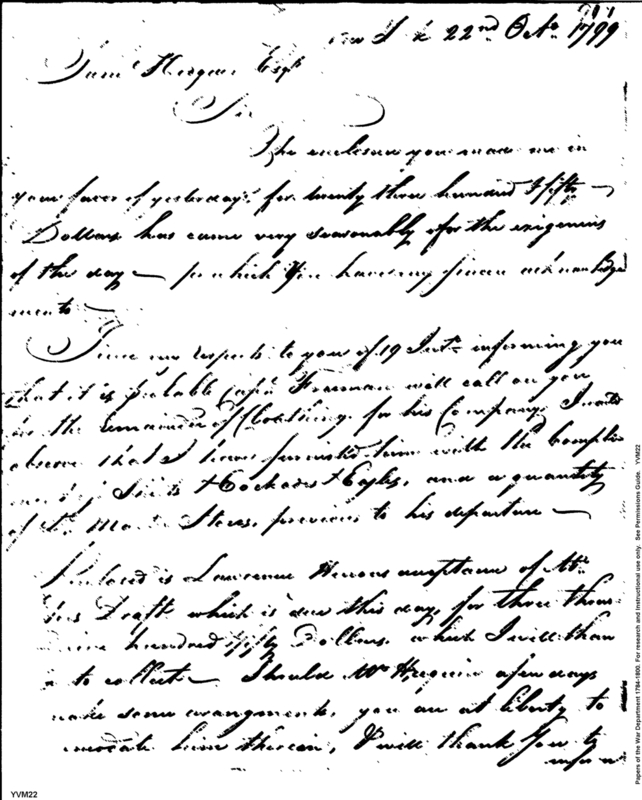 22nd Octo. 1799
Esqr
Sir
The enclosure you made me in
your favor of yesterday for twenty three hundred & fifty
Dollars has came very seasonably for the exigencies
of the day — for which You have my sincere acknowledge
ments —
Since my respects to you of 19 Inst. informing you
that it is probable Capn Freeman will call on you
for the remainder of Cloathing for his Company I
observe that I have furnished him with the
of & Cockades & Eagles, and a quantity
of the Stores, previous to his departure —
Enclosed is Lawrence acceptance of
Draft which is due this day, for three
hundred fifty Dollars which I will thank
to collect — Should Mr a few days
make some arrangements, you are at liberty to
him therein, I will thank You to
inform
Papers of the War Department 1784-1800. For research and instructional use only. See Permissions Guide. YVM22
YVM22